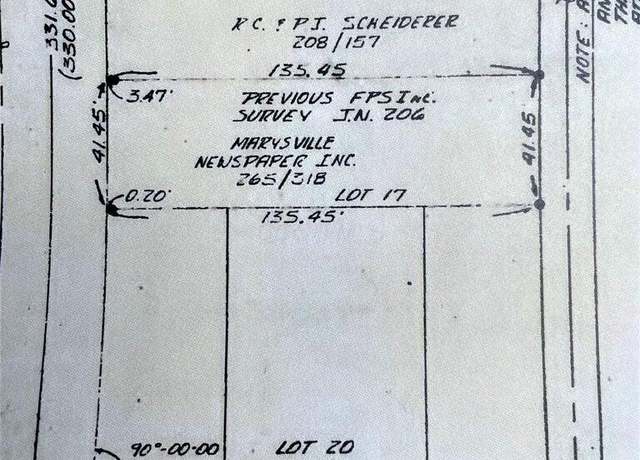 R.C. & P.J. SCHEIDERER
208/157
331.
(330.00
NOTE:
135.45
3.47'
PREVIOUS FPS INC.
SURVEY J.N. 206
41.45'
41.45'
MARYSVILLE
NEWSPAPER INC.
265/318
0.20'
LOT 17
135.45'
90°-00-00
LOT 20